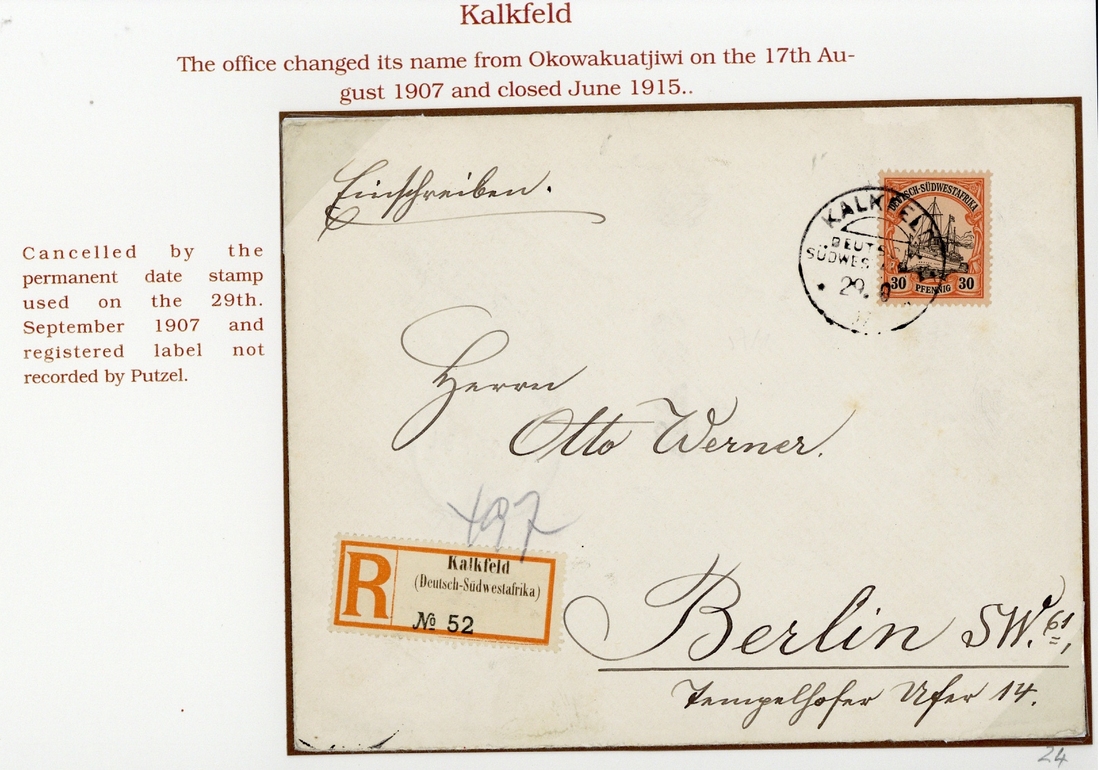 Kalkfeld
The office changed its name from Okowakuatjiwi on the 17th Au-
gust 1907 and closed June 1915..
Cancelled by the
permanent date stamp
used on the 29th.
September 1907 and
registered label not
recorded by Putzel.
Einschreiben.
KALKFEL
DEUTSC
SÜDWES
29. 9
DEUTSCH-SÜDWESTAFRIKA
30 PFENNIG 30
Herrn
Otto Werner.
497
R
Kalkfeld
(Deutsch-Südwestafrika)
№ 52
Berlin SW. 61,
Tempelhofer Ufer 14.
24